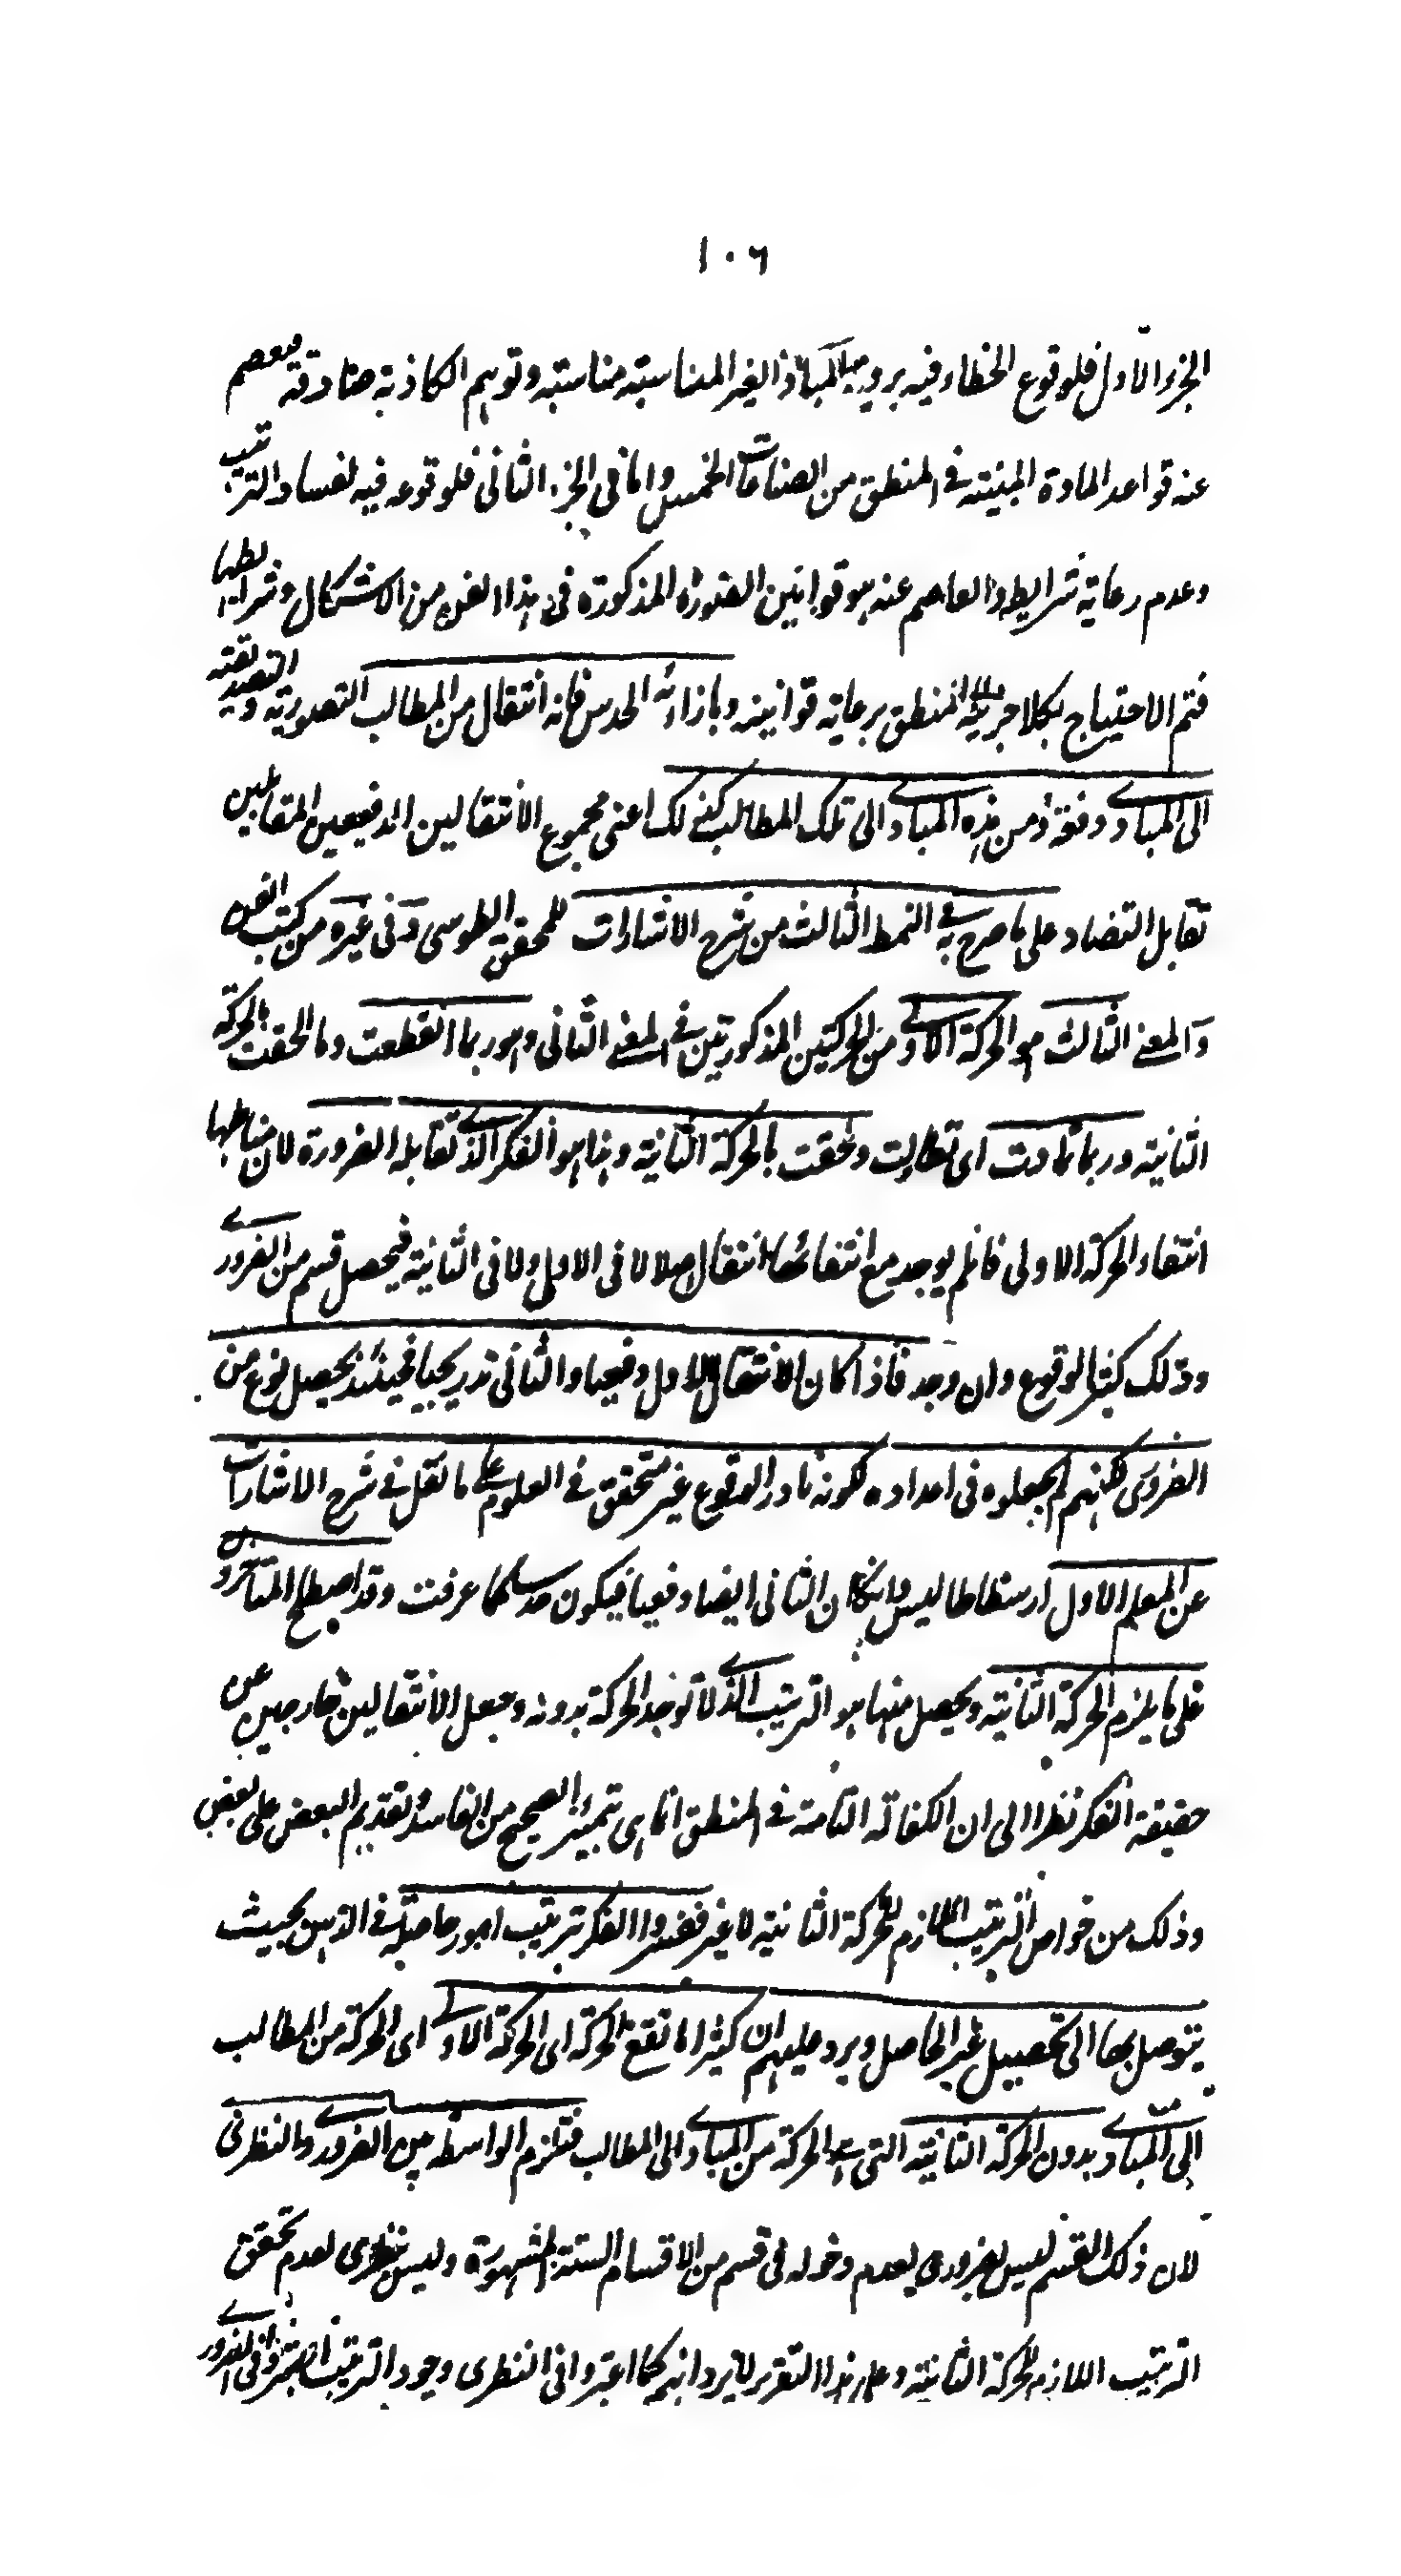 ١٠٦
الجزء الاول فلوقوع الخطاء فيه برويۃ المبادى الغير المناسبة مناسبة وتوهم الكاذبة صادقة فيعصم
عنه قواعد المادة المبنية فى المنطق من الصناعات الخمس واما فى الجزء الثانى فلوقوعه فيه لفساد الترتيب
وعدم رعاية شرايطه والعاصم عنه هو قوانين الصورة المذكورة فى هذا الفن من الاشكال وشرايطها
فتم الاحتياج بكلا جزئيه الى المنطق برعاية قوانينه وبازائه الحدس فانه انتقال من المطالب التصورية والتصديقية
الى المبادى دفعة ومن هذه المبادى الى تلك المطالب كذلك اعنى مجموع الانتقالين الدفيعين المقابلين
تقابل التضاد على ما صرح به فى النمط الثالث من شرح الاشارات للمحقق الطوسى وفى غيره من كتب الفن
والمعنى الثالث هو الحركة الاولى من الحركتين المذكورتين فى المعنى الثانى وهو ربما انقطعت وما لحقت بالحركة
الثانية وربما تمادت اى تطاولت ولحقت بالحركة الثانية وهذا هو الفكر الذى تقابله الضرورة لان مناطها
انتفاء الحركة الاولى فان لم يوجد مع انتفائها انتقال اصلا لا فى الاول ولا فى الثانية فيحصل قسم من الضرورى
وذلك كثير الوقوع وان وجد فاذا كان الانتقال الاول دفعيا والثانى تدريجيا فحينئذ يحصل نوع من
الضرورى لكنهم لم يجعلوه فى اعداده لكونه نادر الوقوع غير متحقق فى العلوم على ما نقل فى شرح الاشارات
عن المعلم الاول ارسطاطاليس وان كان الثانى ايضا دفعيا فيكون حدسا كما عرفت وقد اصطلح المتاخرون
على ما يلزم الحركة الثانية ويحصل منها هو الترتيب الذى لا توجد الحركة بدونه وجعل الانتقالين خارجين عن
حقيقة الفكر نظرا الى ان الكفاتة التامة فى المنطق انما هى تميز الصحيح من الفاسد وتقديم البعض على بعض
وذلك من خواص الترتيب اللازم للحركة الثانية لا غير ففسروا الفكر بترتيب امور حاصلة فى الذهن بحيث
يتوصل بها الى تحصيل غير الحاصل ويرد عليهم ان كثيرا ما تقع الحركة اى الحركة الاولى اى الحركة من المطالب
الى المبادى بدون الحركة الثانية التى هى الحركة من المبادى الى المطالب فتلزم الواسطة بين الضرورى والنظرى
لان ذلك القسم ليس بضرورى لعدم دخوله فى قسم من الاقسام الستة المشهورة وليس بنظرى لعدم تحقق
الترتيب اللازم للحركة الثانية وعلى هذا التقرير لا يرد انهم كما اعتبروا فى النظرى وجود الترتيب اعتبروا فى الضرورى